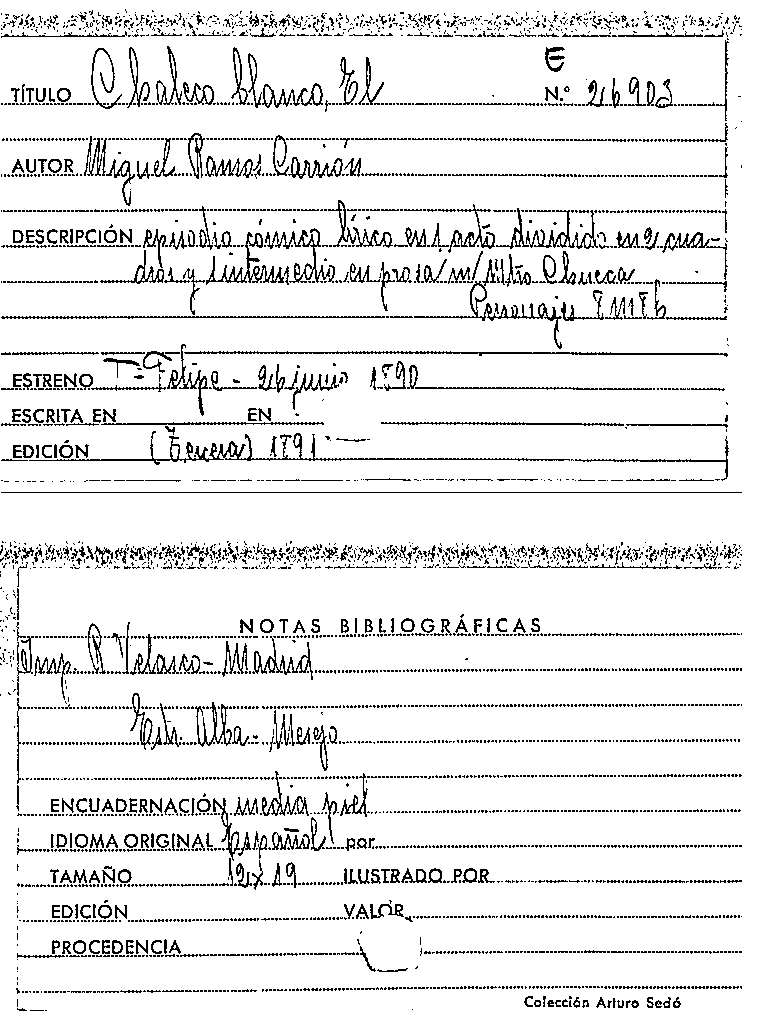 E
TÍTULO Chaleco blanco, El N.º 26903
AUTOR Miguel Ramos Carrión
DESCRIPCIÓN episodio cómico lírico en 1 acto dividido en 2 cua-
dros y 1 intermedio en prosa m/ Mtro Chueca
Personajes
ESTRENO T= Felipe - 26 junio 1890
ESCRITA EN EN
EDICIÓN (Tercera) 1891
NOTAS BIBLIOGRÁFICAS
Imp. R Velasco - Madrid
Estr. Alba - Mesejo
ENCUADERNACIÓN media piel
IDIOMA ORIGINAL Español por
TAMAÑO 12x19 ILUSTRADO POR
EDICIÓN VALOR
PROCEDENCIA
Colección Arturo Sedó